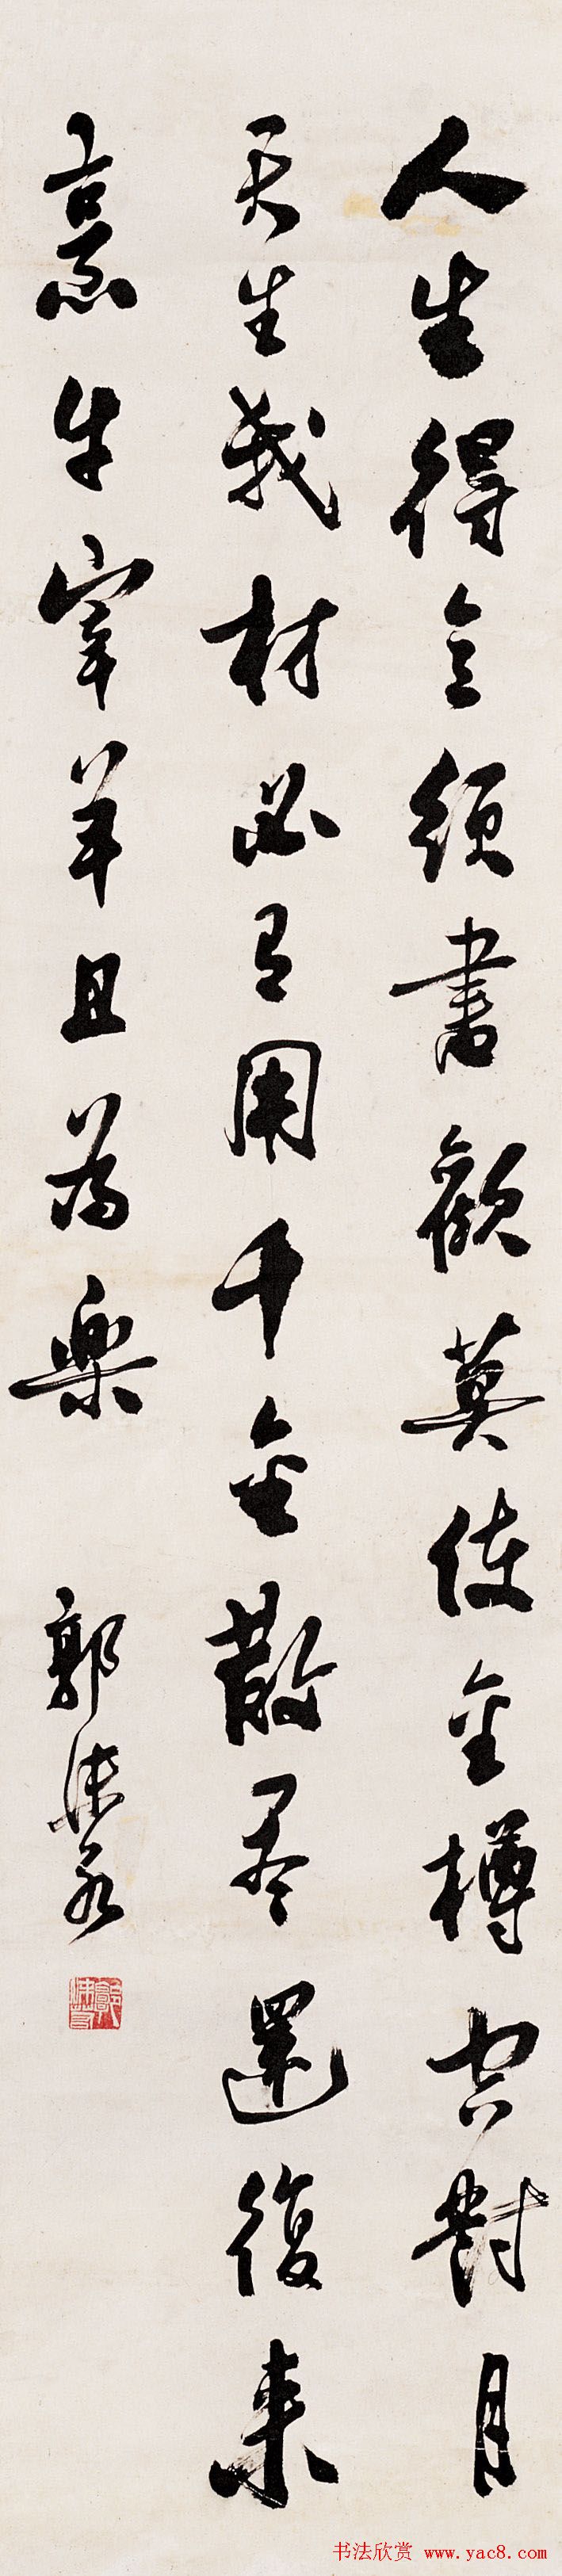 人生得意須盡歡莫使金樽空對月
天生我材必有用千金散尽還復来
烹牛宰羊且為楽
郭沫若
书法欣赏 www.yac8.com